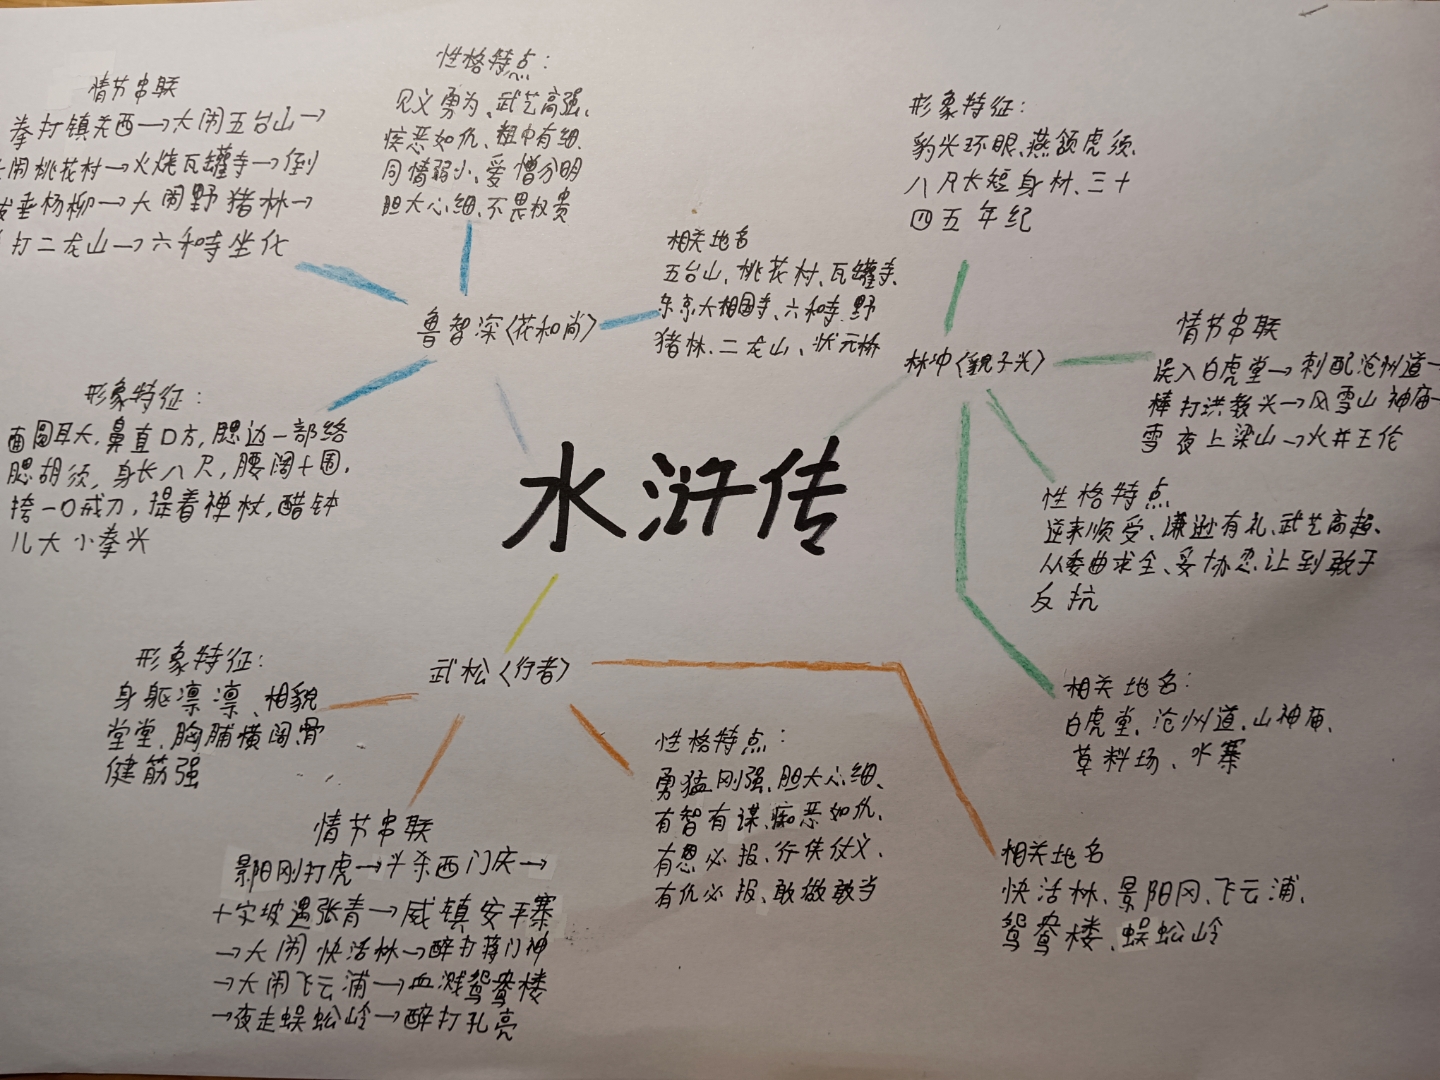 情节串联
拳打镇关西→大闹五台山→
闹桃花村→火烧瓦罐寺→倒
拔垂杨柳→大闹野猪林→
打二龙山→六和寺坐化
性格特点：
见义勇为、武艺高强、
疾恶如仇、粗中有细、
同情弱小、爱憎分明
胆大心细、不畏权贵
相关地名
五台山、桃花村、瓦罐寺、
东京大相国寺、六和寺、野
猪林、二龙山、状元桥
鲁智深〈花和尚〉
形象特征：
面圆耳大，鼻直口方，腮边一部络
腮胡须，身长八尺，腰阔十围，
挎一口戒刀，提着禅杖，醋钵
儿大小拳头
形象特征：
豹头环眼、燕颔虎须、
八尺长短身材、三十
四五年纪
林冲〈豹子头〉
情节串联
误入白虎堂→刺配沧州道→
棒打洪教头→风雪山神庙→
雪夜上梁山→火并王伦
性格特点
逆来顺受、谦逊有礼、武艺高超、
从委曲求全、妥协忍让到敢于
反抗
相关地名：
白虎堂、沧州道、山神庙、
草料场、水寨
水浒传
武松〈行者〉
形象特征：
身躯凛凛、相貌
堂堂、胸脯横阔、骨
健筋强
情节串联
景阳冈打虎→斗杀西门庆→
十字坡遇张青→威镇安平寨
→大闹快活林→醉打蒋门神
→大闹飞云浦→血溅鸳鸯楼
→夜走蜈蚣岭→醉打孔亮
性格特点：
勇猛刚强、胆大心细、
有智有谋、痴恶如仇、
有恩必报、行侠仗义、
有仇必报、敢做敢当
相关地名
快活林、景阳冈、飞云浦、
鸳鸯楼、蜈蚣岭